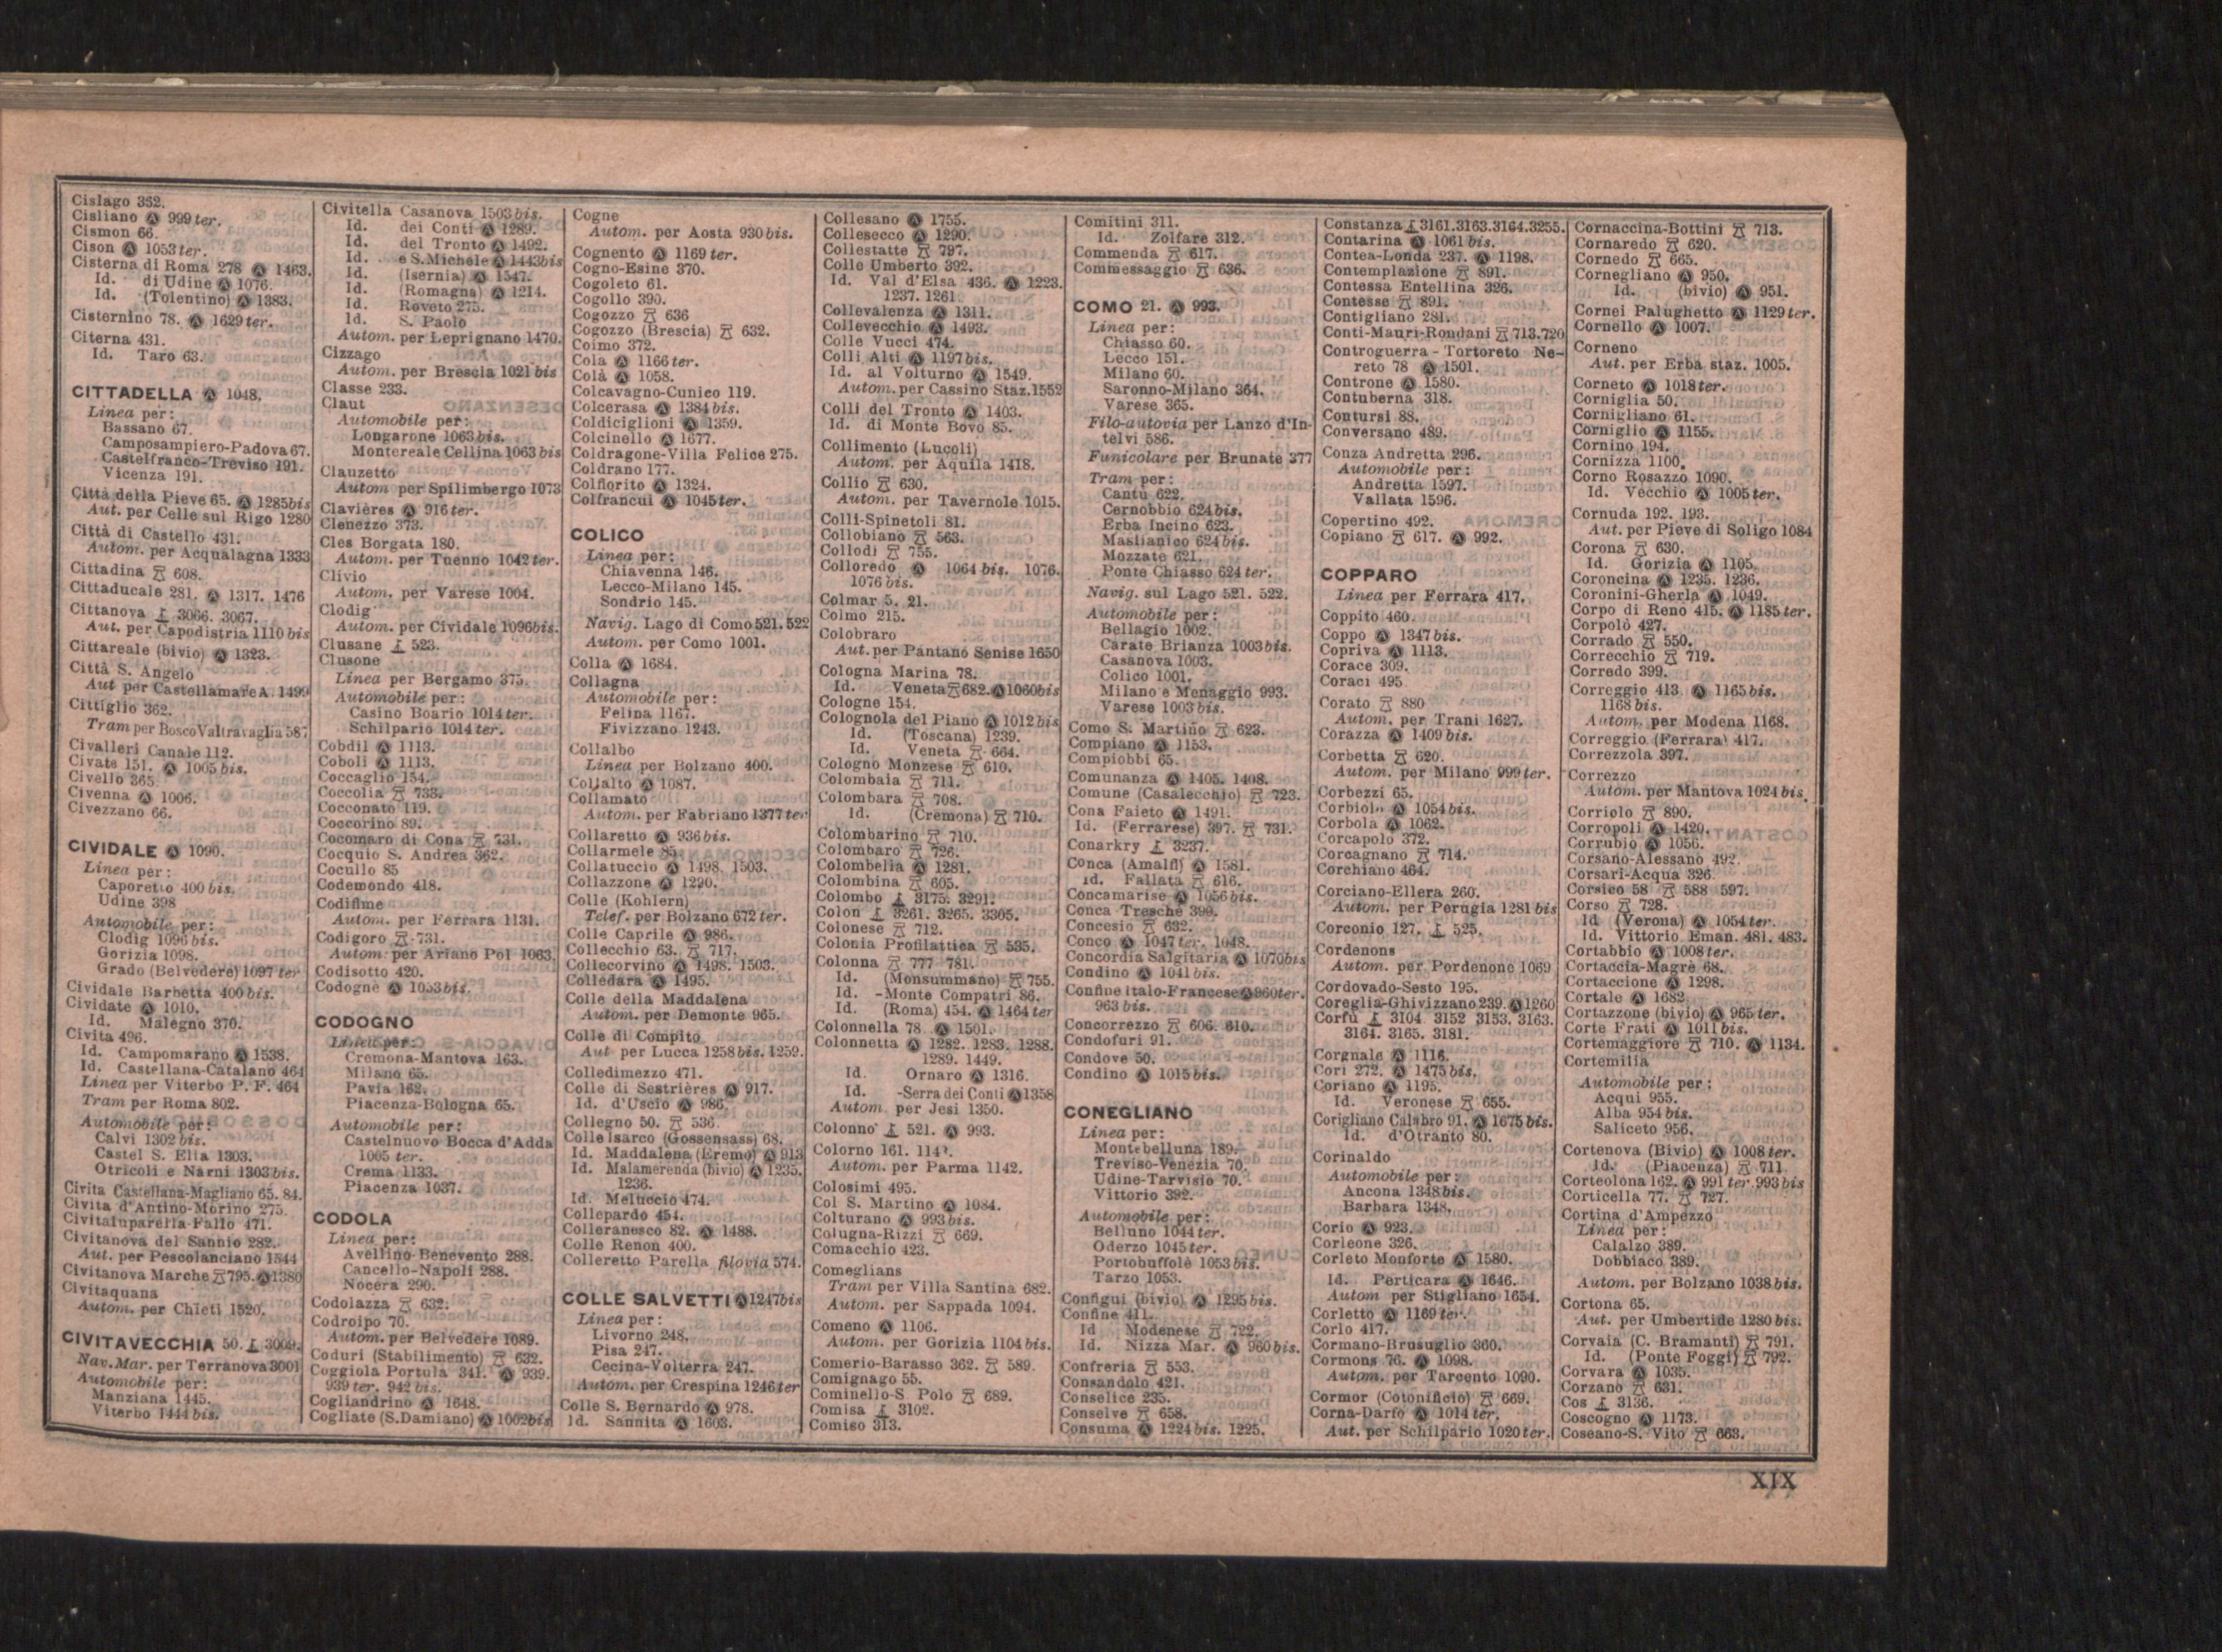 Cislago 352.
Cisliano Ⓐ 999 ter.
Cismon 66.
Cison Ⓐ 1053 ter.
Cisterna di Roma 278 Ⓐ 1463.
Id. di Udine Ⓐ 1076.
Id. (Tolentino) Ⓐ 1383.
Cisternino 78. Ⓐ 1629 ter.
Citerna 431.
Id. Taro 63.
CITTADELLA Ⓐ 1048.
Linea per:
Bassano 67.
Camposampiero-Padova 67.
Castelfranco-Treviso 191.
Vicenza 191.
Città della Pieve 65. Ⓐ 1285 bis
Aut. per Celle sul Rigo 1280
Città di Castello 431.
Autom. per Acqualagna 1333
Cittadina 608.
Cittaducale 281. Ⓐ 1317. 1476
Cittanova 3066. 3067.
Aut. per Capodistria 1110 bis
Cittareale (bivio) Ⓐ 1323.
Città S. Angelo
Aut per Castellamare A. 1499
Cittiglio 362.
Tram per Bosco Valtravaglia 587
Civalleri Canale 112.
Civate 151. Ⓐ 1005 bis.
Civello 365.
Civenna Ⓐ 1006.
Civezzano 66.
CIVIDALE Ⓐ 1096.
Linea per:
Caporetto 400 bis.
Udine 398
Automobile per:
Clodig 1096 bis.
Gorizia 1098.
Grado (Belvedere) 1097 ter
Cividale Barbetta 400 bis.
Cividate Ⓐ 1010.
Id. Malegno 370.
Civita 496.
Id. Campomarano Ⓐ 1538.
Id. Castellana-Catalano 464
Linea per Viterbo P. F. 464
Tram per Roma 802.
Automobile per:
Calvi 1302 bis.
Castel S. Elia 1303.
Otricoli e Narni 1303 bis.
Civita Castellana-Magliano 65. 84.
Civita d'Antino-Morino 275.
Civitaluparella-Fallo 471.
Civitanova del Sannio 282.
Aut. per Pescolanciano 1544
Civitanova Marche 795. Ⓐ 1380
Civitaquana
Autom. per Chieti 1520.
CIVITAVECCHIA 50. 3009.
Nav. Mar. per Terranova 3001
Automobile per:
Manziana 1445.
Viterbo 1444 bis.
Civitella Casanova 1503 bis.
Id. dei Conti Ⓐ 1289.
Id. del Tronto Ⓐ 1492.
Id. e S. Michele Ⓐ 1443 bis
Id. (Isernia) Ⓐ 1547.
Id. (Romagna) Ⓐ 1214.
Id. Roveto 275.
Id. S. Paolo
Autom. per Leprignano 1470.
Cizzago
Autom. per Brescia 1021 bis
Classe 233.
Claut
Automobile per:
Longarone 1063 bis.
Montereale Cellina 1063 bis
Clauzetto
Autom per Spilimbergo 1073
Clavières Ⓐ 916 ter.
Clenezzo 373.
Cles Borgata 180.
Autom. per Tuenno 1042 ter.
Clivio
Autom. per Varese 1004.
Clodig
Autom. per Cividale 1096 bis.
Clusane 523.
Clusone
Linea per Bergamo 375.
Automobile per:
Casino Boario 1014 ter.
Schilpario 1014 ter.
Cobdil Ⓐ 1113.
Coboli Ⓐ 1113.
Coccaglio 154.
Coccolia 733.
Cocconato 119.
Coccorino 89.
Cocomaro di Cona 731.
Cocquio S. Andrea 362.
Cocullo 85
Codemondo 418.
Codifiume
Autom. per Ferrara 1131.
Codigoro 731.
Autom. per Ariano Pol 1063.
Codisotto 420.
Codognè Ⓐ 1053 bis.
CODOGNO
Linea per:
Cremona-Mantova 163.
Milano 65.
Pavia 162.
Piacenza-Bologna 65.
Automobile per:
Castelnuovo Bocca d'Adda
1005 ter.
Crema 1133.
Piacenza 1037.
CODOLA
Linea per:
Avellino-Benevento 288.
Cancello-Napoli 288.
Nocera 290.
Codolazza 632.
Codroipo 70.
Autom. per Belvedere 1089.
Coduri (Stabilimento) 632.
Coggiola Portula 341. Ⓐ 939.
939 ter. 942 bis.
Cogliandrino Ⓐ 1648.
Cogliate (S. Damiano) Ⓐ 1002 bis
Cogne
Autom. per Aosta 930 bis.
Cognento Ⓐ 1169 ter.
Cogno-Esine 370.
Cogoleto 61.
Cogollo 390.
Cogozzo 636
Cogozzo (Brescia) 632.
Coimo 372.
Cola Ⓐ 1166 ter.
Colà Ⓐ 1058.
Colcavagno-Cunico 119.
Colcerasa Ⓐ 1384 bis.
Coldiciglioni Ⓐ 1359.
Colcinello Ⓐ 1677.
Coldragone-Villa Felice 275.
Coldrano 177.
Colfiorito Ⓐ 1324.
Colfrancui Ⓐ 1045 ter.
COLICO
Linea per:
Chiavenna 146.
Lecco-Milano 145.
Sondrio 145.
Navig. Lago di Como 521. 522
Autom. per Como 1001.
Colla Ⓐ 1684.
Collagna
Automobile per:
Felina 1167.
Fivizzano 1243.
Collalbo
Linea per Bolzano 400.
Collalto Ⓐ 1087.
Collamato
Autom. per Fabriano 1377 ter
Collaretto Ⓐ 936 bis.
Collarmele 85.
Collatuccio Ⓐ 1498. 1503.
Collazzone Ⓐ 1290.
Colle (Kohlern)
Telef. per Bolzano 672 ter.
Colle Caprile Ⓐ 986.
Collecchio 63. 717.
Collecorvino Ⓐ 1498. 1503.
Colledara Ⓐ 1495.
Colle della Maddalena
Autom. per Demonte 965.
Colle di Compito
Aut per Lucca 1258 bis. 1259.
Colledimezzo 471.
Colle di Sestrières Ⓐ 917.
Id. d'Uscio Ⓐ 986.
Collegno 50. 536.
Colle Isarco (Gossensass) 68.
Id. Maddalena (Eremo) Ⓐ 913
Id. Malamerenda (bivio) Ⓐ 1235.
1236.
Id. Meluccio 474.
Collepardo 454.
Colleranesco 82. Ⓐ 1488.
Colle Renon 400.
Colleretto Parella filovia 574.
COLLE SALVETTI Ⓐ 1247 bis
Linea per:
Livorno 248.
Pisa 247.
Cecina-Volterra 247.
Autom. per Crespina 1246 ter
Colle S. Bernardo Ⓐ 978.
Id. Sannita Ⓐ 1603.
Collesano Ⓐ 1755.
Collesecco Ⓐ 1290.
Collestatte 797.
Colle Umberto 392.
Id. Val d'Elsa 436. Ⓐ 1223.
1237. 1261.
Collevalenza Ⓐ 1311.
Collevecchio Ⓐ 1493.
Colle Vucci 474.
Colli Alti Ⓐ 1197 bis.
Id. al Volturno Ⓐ 1549.
Autom. per Cassino Staz. 1552
Colli del Tronto Ⓐ 1403.
Id. di Monte Bovo 85.
Collimento (Lucoli)
Autom. per Aquila 1418.
Collio 630.
Autom. per Tavernole 1015.
Colli-Spinetoli 81.
Collobiano 563.
Collodi 755.
Colloredo Ⓐ 1064 bis. 1076.
1076 bis.
Colmar 5. 21.
Colmo 215.
Colobraro
Aut. per Pantano Senise 1650
Cologna Marina 78.
Id. Veneta 682. Ⓐ 1060 bis
Cologne 154.
Colognola del Piano Ⓐ 1012 bis
Id. (Toscana) 1239.
Id. Veneta 664.
Cologno Monzese 610.
Colombaia 711.
Colombara 708.
Id. (Cremona) 710.
Colombarino 710.
Colombaro 726.
Colombella Ⓐ 1281.
Colombina 605.
Colombo 3175. 3291.
Colon 3261. 3265. 3305.
Colonese 712.
Colonia Profilattica 535.
Colonna 777 781.
Id. (Monsummano) 755.
Id. -Monte Compatri 86.
Id. (Roma) 454. Ⓐ 1464 ter
Colonnella 78 Ⓐ 1501.
Colonnetta Ⓐ 1282. 1283. 1288.
1289. 1449.
Id. Ornaro Ⓐ 1316.
Id. -Serra dei Conti Ⓐ 1358
Autom per Jesi 1350.
Colonno 521. Ⓐ 993.
Colorno 161.
Autom. per Parma 1142.
Colosimi 495.
Col S. Martino Ⓐ 1084.
Colturano Ⓐ 993 bis.
Colugna-Rizzi 669.
Comacchio 423.
Comeglians
Tram per Villa Santina 682.
Autom. per Sappada 1094.
Comeno Ⓐ 1106.
Autom. per Gorizia 1104 bis.
Comerio-Barasso 362. 589.
Comignago 55.
Cominello-S. Polo 689.
Comisa 3102.
Comiso 313.
Comitini 311.
Id. Zolfare 312.
Commenda 617.
Commessaggio 636.
COMO 21. Ⓐ 993.
Linea per:
Chiasso 60.
Lecco 151.
Milano 60.
Saronno-Milano 364.
Varese 365.
Filo-autovia per Lanzo d'In-
telvi 586.
Funicolare per Brunate 377
Tram per:
Cantù 622.
Cernobbio 624 bis.
Erba Incino 623.
Maslianico 624 bis.
Mozzate 621.
Ponte Chiasso 624 ter.
Navig. sul Lago 521. 522.
Automobile per:
Bellagio 1002.
Carate Brianza 1003 bis.
Casanova 1003.
Colico 1001.
Milano e Menaggio 993.
Varese 1003 bis.
Como S. Martino 623.
Compiano Ⓐ 1153.
Compiobbi 65.
Comunanza Ⓐ 1405. 1408.
Comune (Casalecchio) 723.
Cona Faieto Ⓐ 1491.
Id. (Ferrarese) 397. 731.
Conarkry 3237.
Conca (Amalfi) Ⓐ 1581.
Id. Fallata 616.
Concamarise Ⓐ 1056 bis.
Conca Tresche 390.
Concesio 632.
Conco Ⓐ 1047 ter. 1048.
Concordia Salgitaria Ⓐ 1070 bis
Condino Ⓐ 1041 bis.
Confine Italo-Francese Ⓐ 960 ter.
963 bis.
Concorrezzo 606. 610.
Condofuri 91.
Condove 50.
Condino Ⓐ 1015 bis.
CONEGLIANO
Linea per:
Montebelluna 189.
Treviso-Venezia 70.
Udine-Tarvisio 70.
Vittorio 392.
Automobile per:
Belluno 1044 ter.
Oderzo 1045 ter.
Portobuffolè 1053 bis.
Tarzo 1053.
Configui (bivio) Ⓐ 1295 bis.
Confine 411.
Id Modenese 722.
Id. Nizza Mar. Ⓐ 960 bis.
Confreria 553.
Consandolo 421.
Conselice 235.
Conselve 658.
Consuma Ⓐ 1224 bis. 1225.
Constanza 3161. 3163. 3164. 3255.
Contarina Ⓐ 1061 bis.
Contea-Londa 237. Ⓐ 1198.
Contemplazione 891.
Contessa Entellina 326.
Contesse 891.
Contigliano 281.
Conti-Mauri-Rondani 713. 720
Controguerra - Tortoreto Ne-
reto 78 Ⓐ 1501.
Controne Ⓐ 1580.
Contuberna 318.
Contursi 88.
Conversano 489.
Conza Andretta 296.
Automobile per:
Andretta 1597.
Vallata 1596.
Copertino 492.
Copiano 617. Ⓐ 992.
COPPARO
Linea per Ferrara 417.
Coppito 460.
Coppo Ⓐ 1347 bis.
Copriva Ⓐ 1113.
Corace 309.
Coraci 495
Corato 880
Autom. per Trani 1627.
Corazza Ⓐ 1409 bis.
Corbetta 620.
Autom. per Milano 999 ter.
Corbezzi 65.
Corbiolo Ⓐ 1054 bis.
Corbola Ⓐ 1062.
Corcapolo 372.
Corcagnano 714.
Corchiano 464.
Corciano-Ellera 260.
Autom. per Perugia 1281 bis
Corconio 127. 525.
Cordenons
Autom. per Pordenone 1069
Cordovado-Sesto 195.
Coreglia-Ghivizzano 239. Ⓐ 1260
Corfù 3104 3152 3153. 3163.
3164. 3165. 3181.
Corgnale Ⓐ 1116.
Cori 272. Ⓐ 1475 bis.
Coriano Ⓐ 1195.
Id. Veronese 655.
Corigliano Calabro 91. Ⓐ 1675 bis.
Id. d'Otranto 80.
Corinaldo
Automobile per:
Ancona 1348 bis.
Barbara 1348.
Corio Ⓐ 923.
Corleone 326.
Corleto Monforte Ⓐ 1580.
Id. Perticara Ⓐ 1646.
Autom per Stigliano 1654.
Corletto Ⓐ 1169 ter.
Corlo 417.
Cormano-Brusuglio 360.
Cormons 76. Ⓐ 1098.
Autom. per Tarcento 1090.
Cormor (Cotonificio) 669.
Corna-Darfo Ⓐ 1014 ter.
Aut. per Schilpario 1020 ter.
Cornaccina-Bottini 713.
Cornaredo 620.
Cornedo 665.
Cornegliano Ⓐ 950.
Id. (bivio) Ⓐ 951.
Cornei Palughetto Ⓐ 1129 ter.
Cornello Ⓐ 1007.
Corneno
Aut. per Erba staz. 1005.
Corneto Ⓐ 1018 ter.
Corniglia 50.
Cornigliano 61.
Corniglio Ⓐ 1155.
Cornino 194.
Cornizza 1100.
Corno Rosazzo 1090.
Id. Vecchio Ⓐ 1005 ter.
Cornuda 192. 193.
Aut. per Pieve di Soligo 1084
Corona 630.
Id. Gorizia Ⓐ 1105.
Coroncina Ⓐ 1235. 1236.
Coronini-Gherla Ⓐ 1049.
Corpo di Reno 415. Ⓐ 1185 ter.
Corpolò 427.
Corrado 550.
Correcchio 719.
Corredo 399.
Correggio 413 Ⓐ 1165 bis.
1168 bis.
Autom. per Modena 1168.
Correggio (Ferrara) 417.
Correzzola 397.
Correzzo
Autom. per Mantova 1024 bis.
Corriolo 890.
Corropoli Ⓐ 1420.
Corrubio Ⓐ 1056.
Corsano-Alessano 492.
Corsari-Acqua 326.
Corsico 58 588 597.
Corso 728.
Id (Verona) Ⓐ 1054 ter.
Id. Vittorio Eman. 481. 483.
Cortabbio Ⓐ 1008 ter.
Cortaccia-Magrè 68.
Cortaccione Ⓐ 1298.
Cortale Ⓐ 1682
Cortazzone (bivio) Ⓐ 965 ter.
Corte Frati Ⓐ 1011 bis.
Cortemaggiore 710. Ⓐ 1134.
Cortemilia
Automobile per:
Acqui 955.
Alba 954 bis.
Saliceto 956.
Cortenova (Bivio) Ⓐ 1008 ter.
Id. (Piacenza) 711.
Corteolona 162. Ⓐ 991 ter. 993 bis
Corticella 77. 727.
Cortina d'Ampezzo
Linea per:
Calalzo 389.
Dobbiaco 389.
Autom. per Bolzano 1038 bis.
Cortona 65.
Aut. per Umbertide 1280 bis.
Corvaia (C. Bramanti) 791.
Id. (Ponte Foggi) 792.
Corvara Ⓐ 1035.
Corzano 631.
Cos 3136.
Coscogno Ⓐ 1173.
Coseano-S. Vito 663.
XIX